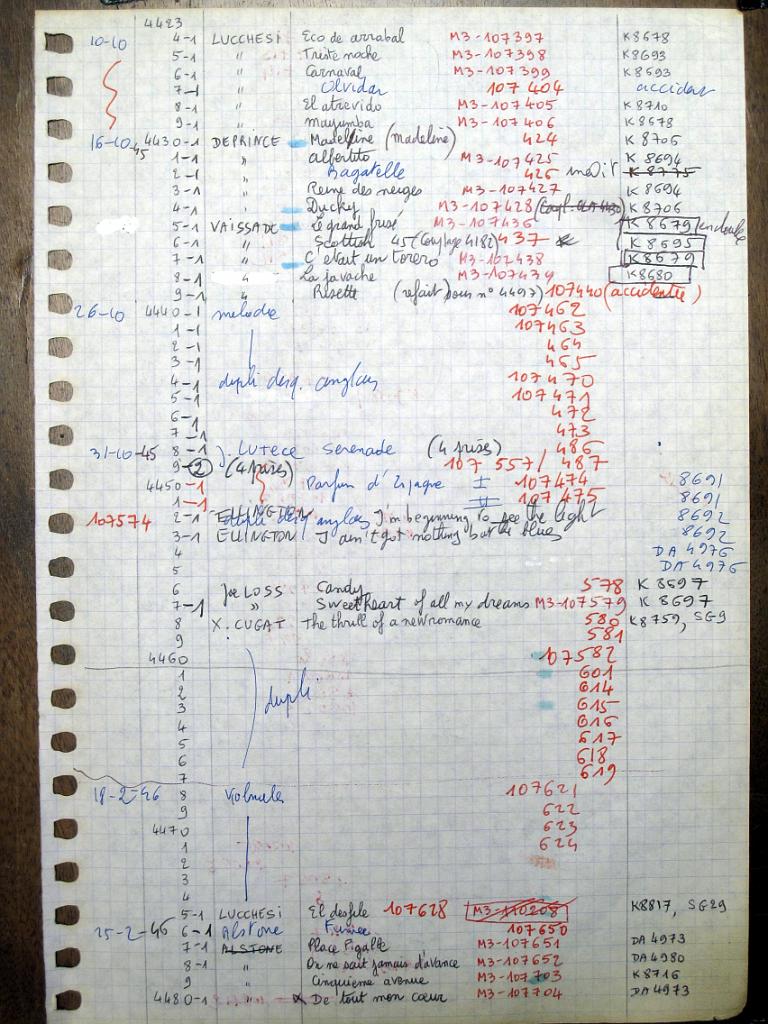 4423
10-10 4-1 LUCCHESI Eco de arrabal M3-107397 K8678
5-1 " Triste noche M3-107398 K8693
6-1 " Carnaval M3-107399 K8693
7-1 " Olvidar 107 404 accident
8-1 " El atrevido M3-107405 K8710
9-1 " mayumba M3-107406 K8678
16-10-45 4430-1 DEPRINCE Madelfine (madeleine) 424 K 8706
1-1 " albertito M3-107425 K 8694
2-1 " Bagatelle 426 inedit K 8775
3-1 " Reine des neiges M3-107427 K 8694
4-1 " Ducky M3-107428 K8706
5-1 VAISSADE Le grand frisé M3-107436 K 8679
6-1 " Scottish 45 (Couplage 4182) 437 K 8695
7-1 " C'etait un torero M3-107438 K 8679
8-1 " La javache M3-107439 K8680
9-1 " Risette (refait sous n° 4497) 107440 (accidentée)
26-10 4440-1 melodie 107462
1-1 107463
2-1 464
3-1 465
4-1 dupli desq. anglais 107470
5-1 107471
6-1 472
7-1 473
31-10-45 8-1 J. LUTECE Serenade (4 prises) 486
9-2 (4 prises) 107 557 / 487
4450-1 Parfum d'Espagne I 107474 8691
1-1 II 107 475 8691
107574 2-1 ELLINGTON I'm beginning to see the light 8692
3-1 ELLINGTON I ain't got nothing but the blues 8692
4 DA 4976
5 DA 4976
6 Joe LOSS Candy 578 K 8697
7-1 " Sweetheart of all my dreams M3-107579 K 8697
8 X. CUGAT The thrill of a new romance 580 K8759, SG9
9 581
4460 107582
1 601
2 dupli 614
3 615
4 616
5 617
6 618
7 619
18-2-46 8 107621
9 622
4470 623
1 624
2
3
4
5-1 LUCCHESI El desfile 107628 M3-110208 K8817, SG29
25-2-46 6-1 Alstone Fumée 107650
7-1 ALSTONE Place Pigalle M3-107651 DA 4973
8-1 " On ne sait jamais d'avance M3-107652 DA 4980
9 " Cinquieme avenue M3-107703 K 8716
4480-1 " x De tout mon cœur M3-107704 DA 4973